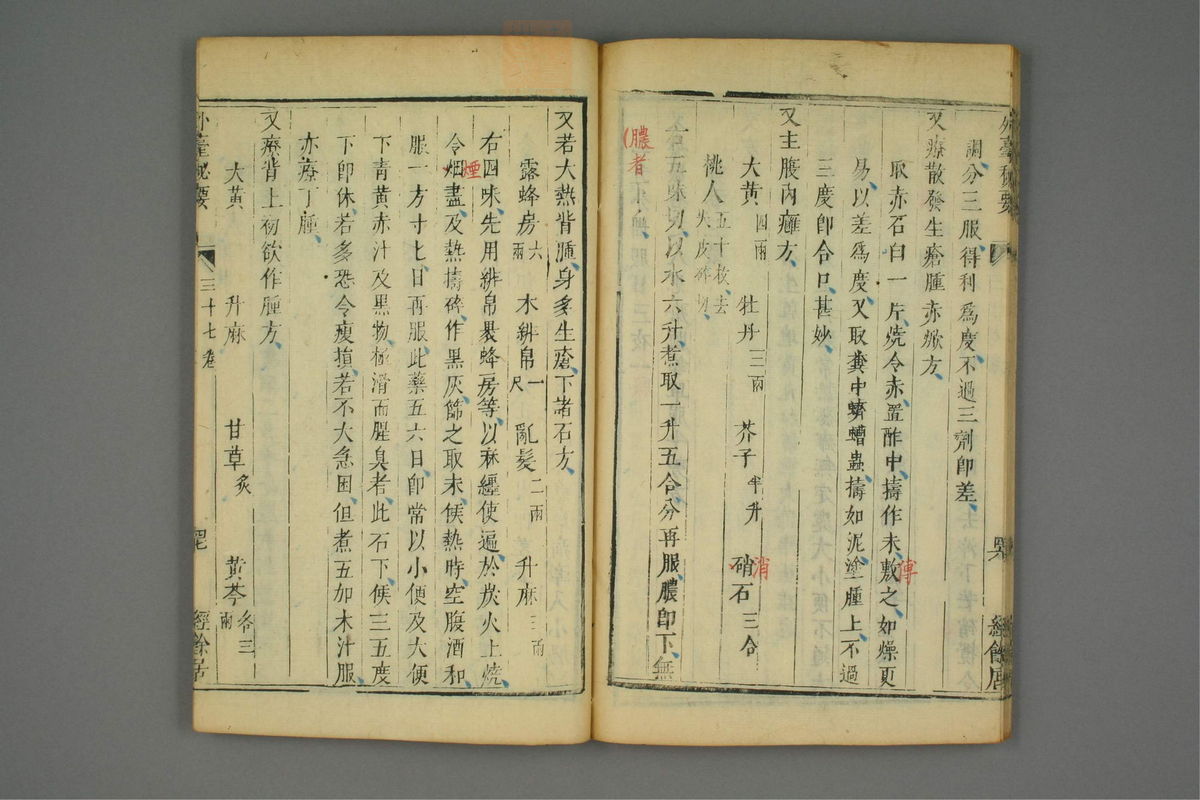 外臺秘要
經餘居
調分三服得利爲度不過三劑即差
又療散發生瘡腫赤焮方
取赤石白一片燒令赤置酢中擣作末敷之如燥更
傅
易以差爲度又取糞中蠐螬蟲擣如泥塗腫上不過
三度即合口甚妙
又主腹內癰方
大黄四兩 牡丹三兩 芥子半升 硝石三合
消
桃人五十枚去尖皮碎切
右五味切以水六升煮取一升五合分再服膿即下無
膿者
又若大熱背腫身多生瘡下諸石方
露蜂房六兩 木緋帛一尺 亂髮二兩 升麻三兩
右四味先用緋帛裂蜂房等以麻纏使遍於炭火上燒
煙
令烟盡及熱擣碎作黑灰篩之取末候熱時空腹酒和
服一方寸匕日再服此藥五六日即常以小便及大便
下青黄赤汁及黑物極滑而腥臭者此石下候三五度
下即休若多恐令瘦損若不大急困但煮五加木汁服
亦療丁腫
又療背上初欲作腫方
大黄 升麻 甘草炙 黄芩各三兩
外臺秘要
三十七卷
經餘居